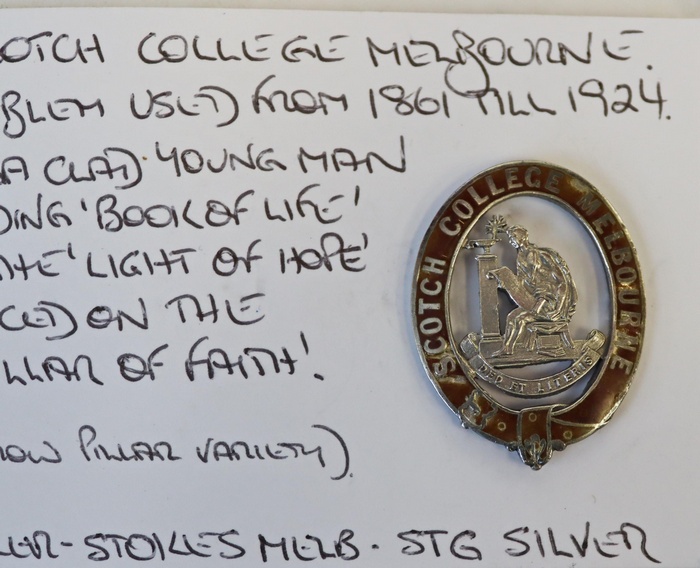 OTCH COLLEGE MELBOURNE.
BLEM USED FROM 1861 TILL 1924.
A CLAD YOUNG MAN
DING 'BOOK OF LIFE'
THE 'LIGHT OF HOPE'
CED ON THE
LLAR OF FAITH'.
OW PILLAR VARIETY)
LER-STOKES MELB. STG SILVER
SCOTCH COLLEGE MELBOURNE
DEO ET LITERIS